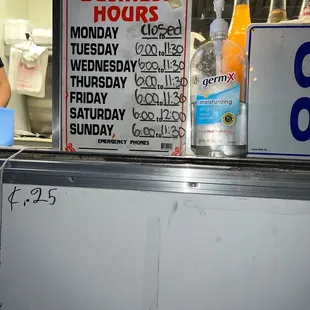 BUSINESS
HOURS
MONDAY Closed
TUESDAY 6:00 to 11:30
WEDNESDAY 6:00 to 11:30
THURSDAY 6:00 to 11:30
FRIDAY 6:00 to 11:30
SATURDAY 6:00 to 12:00
SUNDAY 6:00 to 11:30
EMERGENCY PHONES
germ-x
moisturizing
¢.25